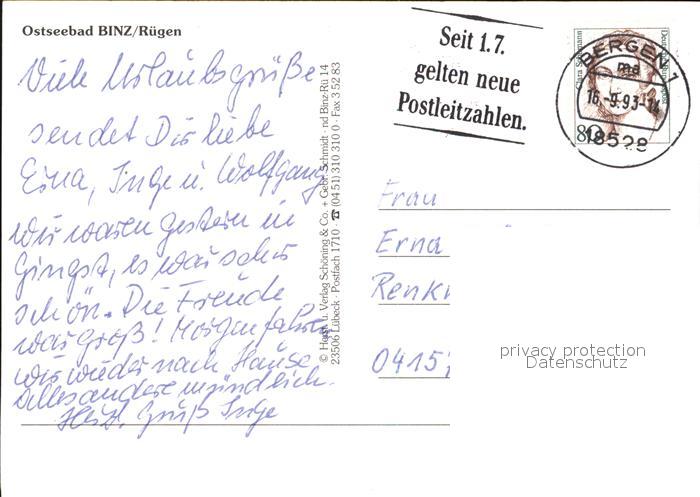 Ostseebad BINZ/Rügen
Viele Urlaubsgrüße
sendet Dir liebe
Erna, Inge u. Wolfgang
Wir waren gestern in
Gingst, es war sehr
schön. Die Freude
war groß! Morgen fahren
wir wieder nach Hause
Alles andere mündlich.
Herzl. Gruß Inge
© Horst u. Verlag Schöning & Co. + Gebr. Schmidt · nd Binz-Rü 14
23506 Lübeck · Postfach 1710 · ☎ (04 51) 310 310 0 · Fax 3 52 83
Seit 1.7.
gelten neue
Postleitzahlen.
BERGEN 1
ma
16.-9.93-14
18528
Deutsche Bundespost
80
Frau
Erna
Renk
0415
privacy protection
Datenschutz